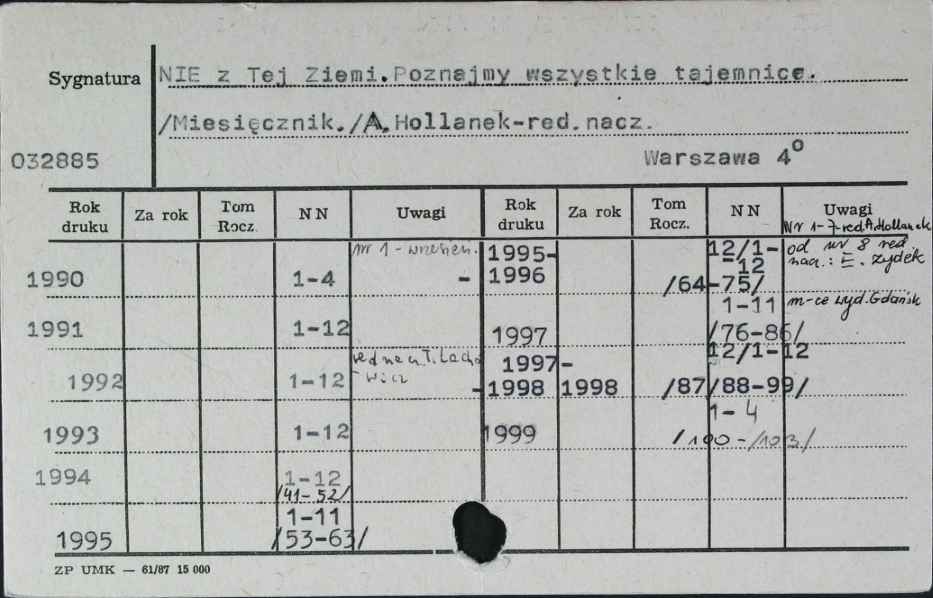 Sygnatura
NIE z Tej Ziemi. Poznajmy wszystkie tajemnice.
/Miesięcznik./A.Hollanek-red.nacz.
032885
Warszawa 4º
Rok druku Za rok Tom Rocz. NN Uwagi Rok druku Za rok Tom Rocz. NN Uwagi
Nr 1-7 red A.Hollanek
od nr 8 red
nacz.: E. Zydek
1990 1-4 nr 1 - wrzesień.
1991 1-12
1992 1-12 red nacz T. Lacho
-wicz
1993 1-12
1994 1-12
/41-52/
1995 1-11
/53-63/
1995-
-1996 12/1-
12
/64-75/
1997 1-11 m-ce wyd. Gdańsk
/76-86/
1997-
-1998 1998 12/1-12
/87/88-99/
1999 1-4
/100-/103/
ZP UMK — 61/87 15 000